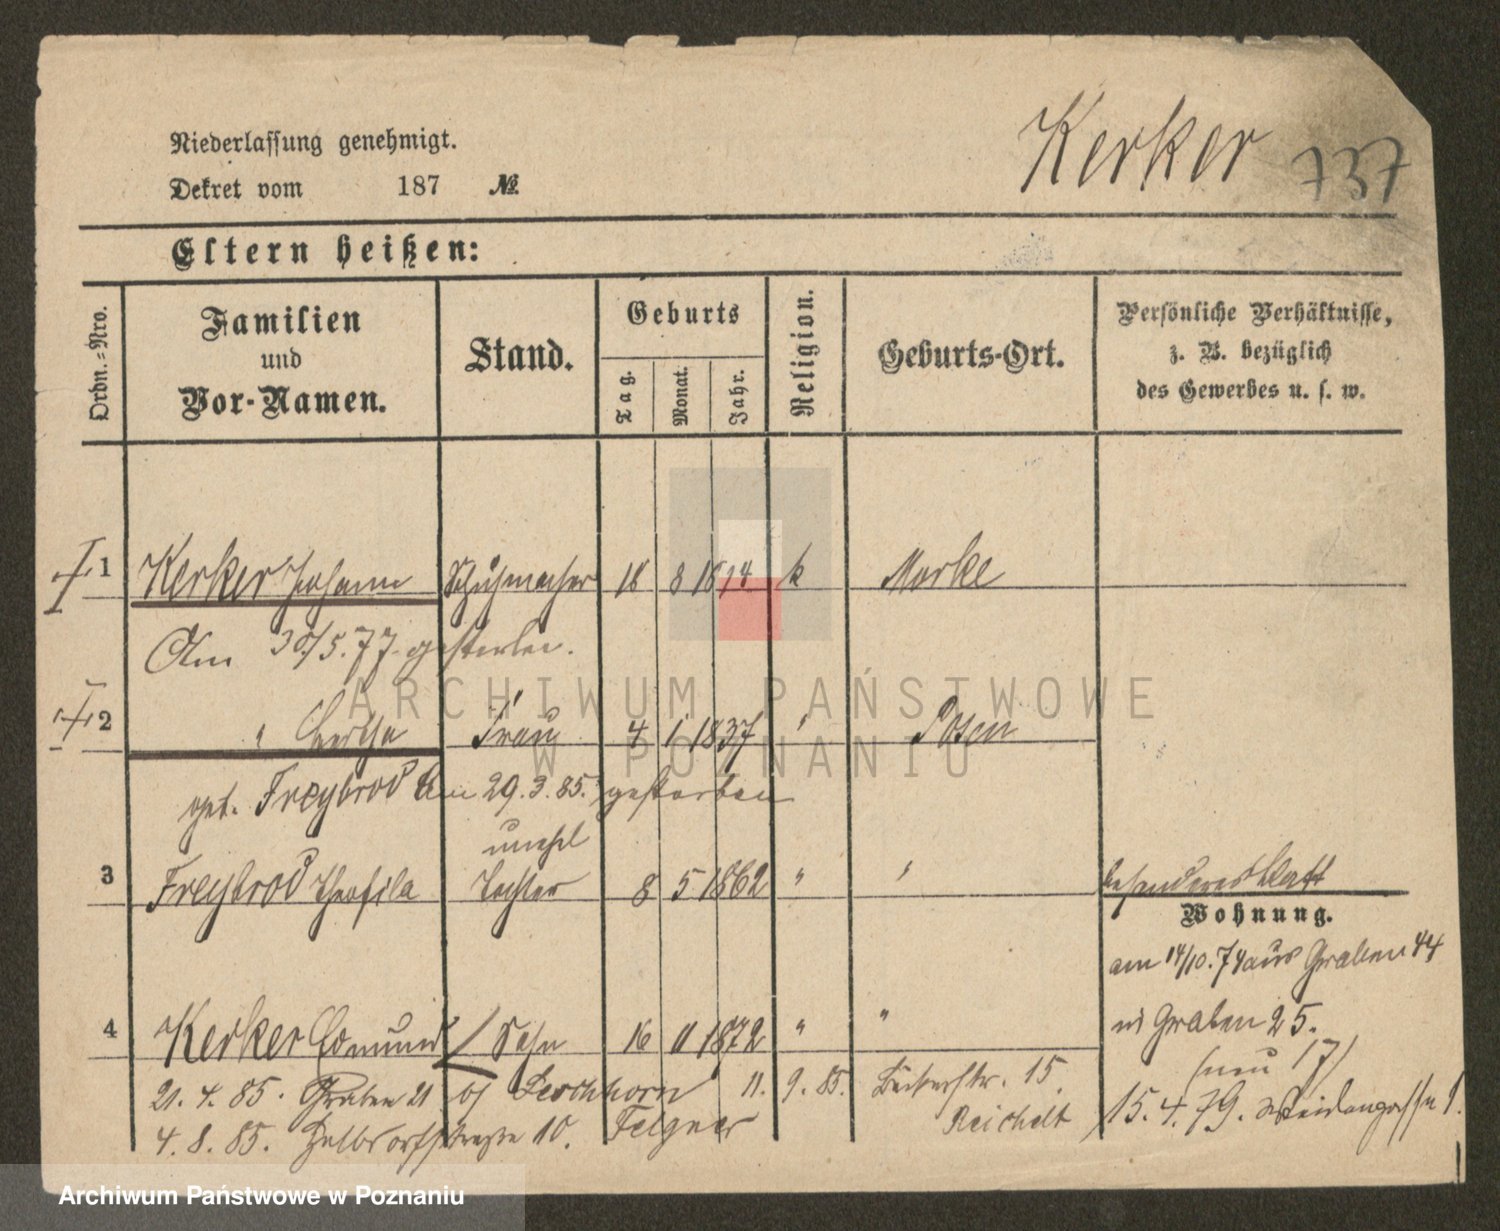 Kerker 737
Niederlassung genehmigt.
Dekret vom 187 №
Eltern heißen:
Ordn.-Nro.
Familien
und
Vor-Namen.
Stand.
Geburts
Tag.
Monat.
Jahr.
Religion.
Geburts-Ort.
Persönliche Verhältnisse,
z. B. bezüglich
des Gewerbes u. s. w.
1 Kerker Johann Schuhmacher 18 8 1814 k Morke
Am 30/5.77 gestorben.
ARCHIWUM PAŃSTWOWE
W POZNANIU
2 " Bertha Frau 4 1 1837 " Posen
geb. Freybrod Am 29.3.85. gestorben
unehl
3 Freybrod Theofila Tochter 8 5 1862 " " besonderes Blatt
Wohnung.
am 14/10.74 aus Graben 44
4 Kerker Edmund Sohn 16 11 1872 " " in Graben 25.
(neu 17)
21.4.85. Graben 21 bj Leschhorn 11.9.85. Bäckerstr. 15. 15.4.79. Weidengasse 1.
Reichelt
4.8.85. Halbdorfstraße 10. Felgner
Archiwum Państwowe w Poznaniu